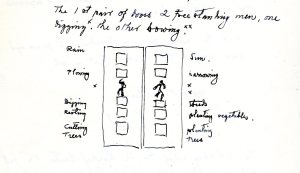 The 1st pair of doors 2 free standing men, one
Digging, the other Sowing.
Rain
Sun.
Plowing
Harrowing
x
x
x
Digging
planting vegetables.
Cutting
Trees
planting
Trees